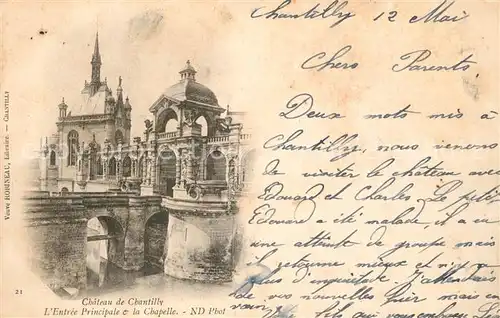 Chantilly 12 Mai
Chers Parents,
Deux mots mis à
Chantilly, nous venons
de visiter le château avec
Edouard et Charles. Le petit
Edouard a été malade, il a
une atteinte de grippe mais
il mieux et n'y a
plus d'inquiétude. J'attendais
de vos nouvelles hier mais
vous
Veuve ROBINEAU, Libraire. — CHANTILLY
21
Château de Chantilly
L'Entrée Principale & la Chapelle. - ND Phot